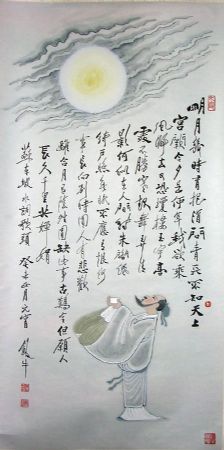 明月幾時有把酒問青天不知天上
宮闕今夕是何年我欲乘
風歸去又恐瓊樓玉宇高
處不勝寒起舞弄清
影何似在人間轉朱閣低
綺戶照無眠不應有恨何
事長向別時圓人有悲歡
離合月有陰晴圓缺此事古難全但願人
長久千里共嬋娟
蘇東坡水調歌頭 元宵